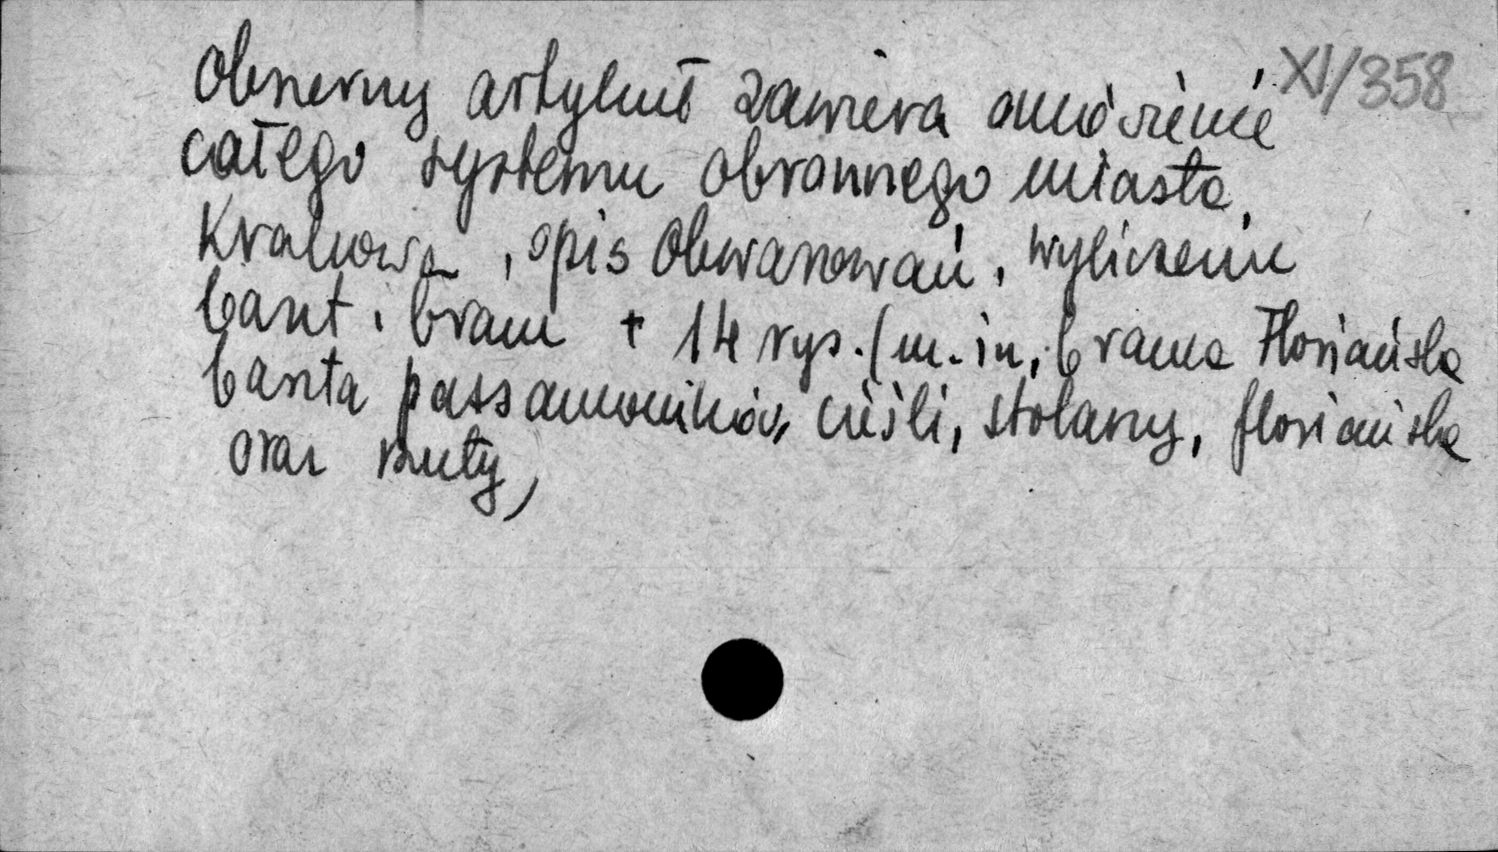 XI/358
Obszerny artykuł zawiera omówienie
całego systemu obronnego miasta,
Krakowa, opis obwarowań, wyliczenie
baszt i bram + 14 rys. (m.in. brama Floriańska
baszta passamoników, cieśli, stolarzy, floriańska
oraz rzuty)